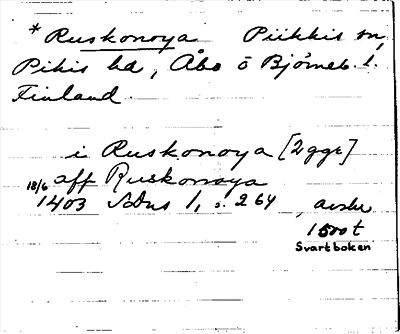 * Ruskonoya Piikkis sn,
Pikis hd, Åbo o Björneb. l.
Finland
i Ruskonoya [2 ggr]
18/6 aff Ruskonoya
1403 SDns 1, s. 264, avskr
1500 t
Svartboken